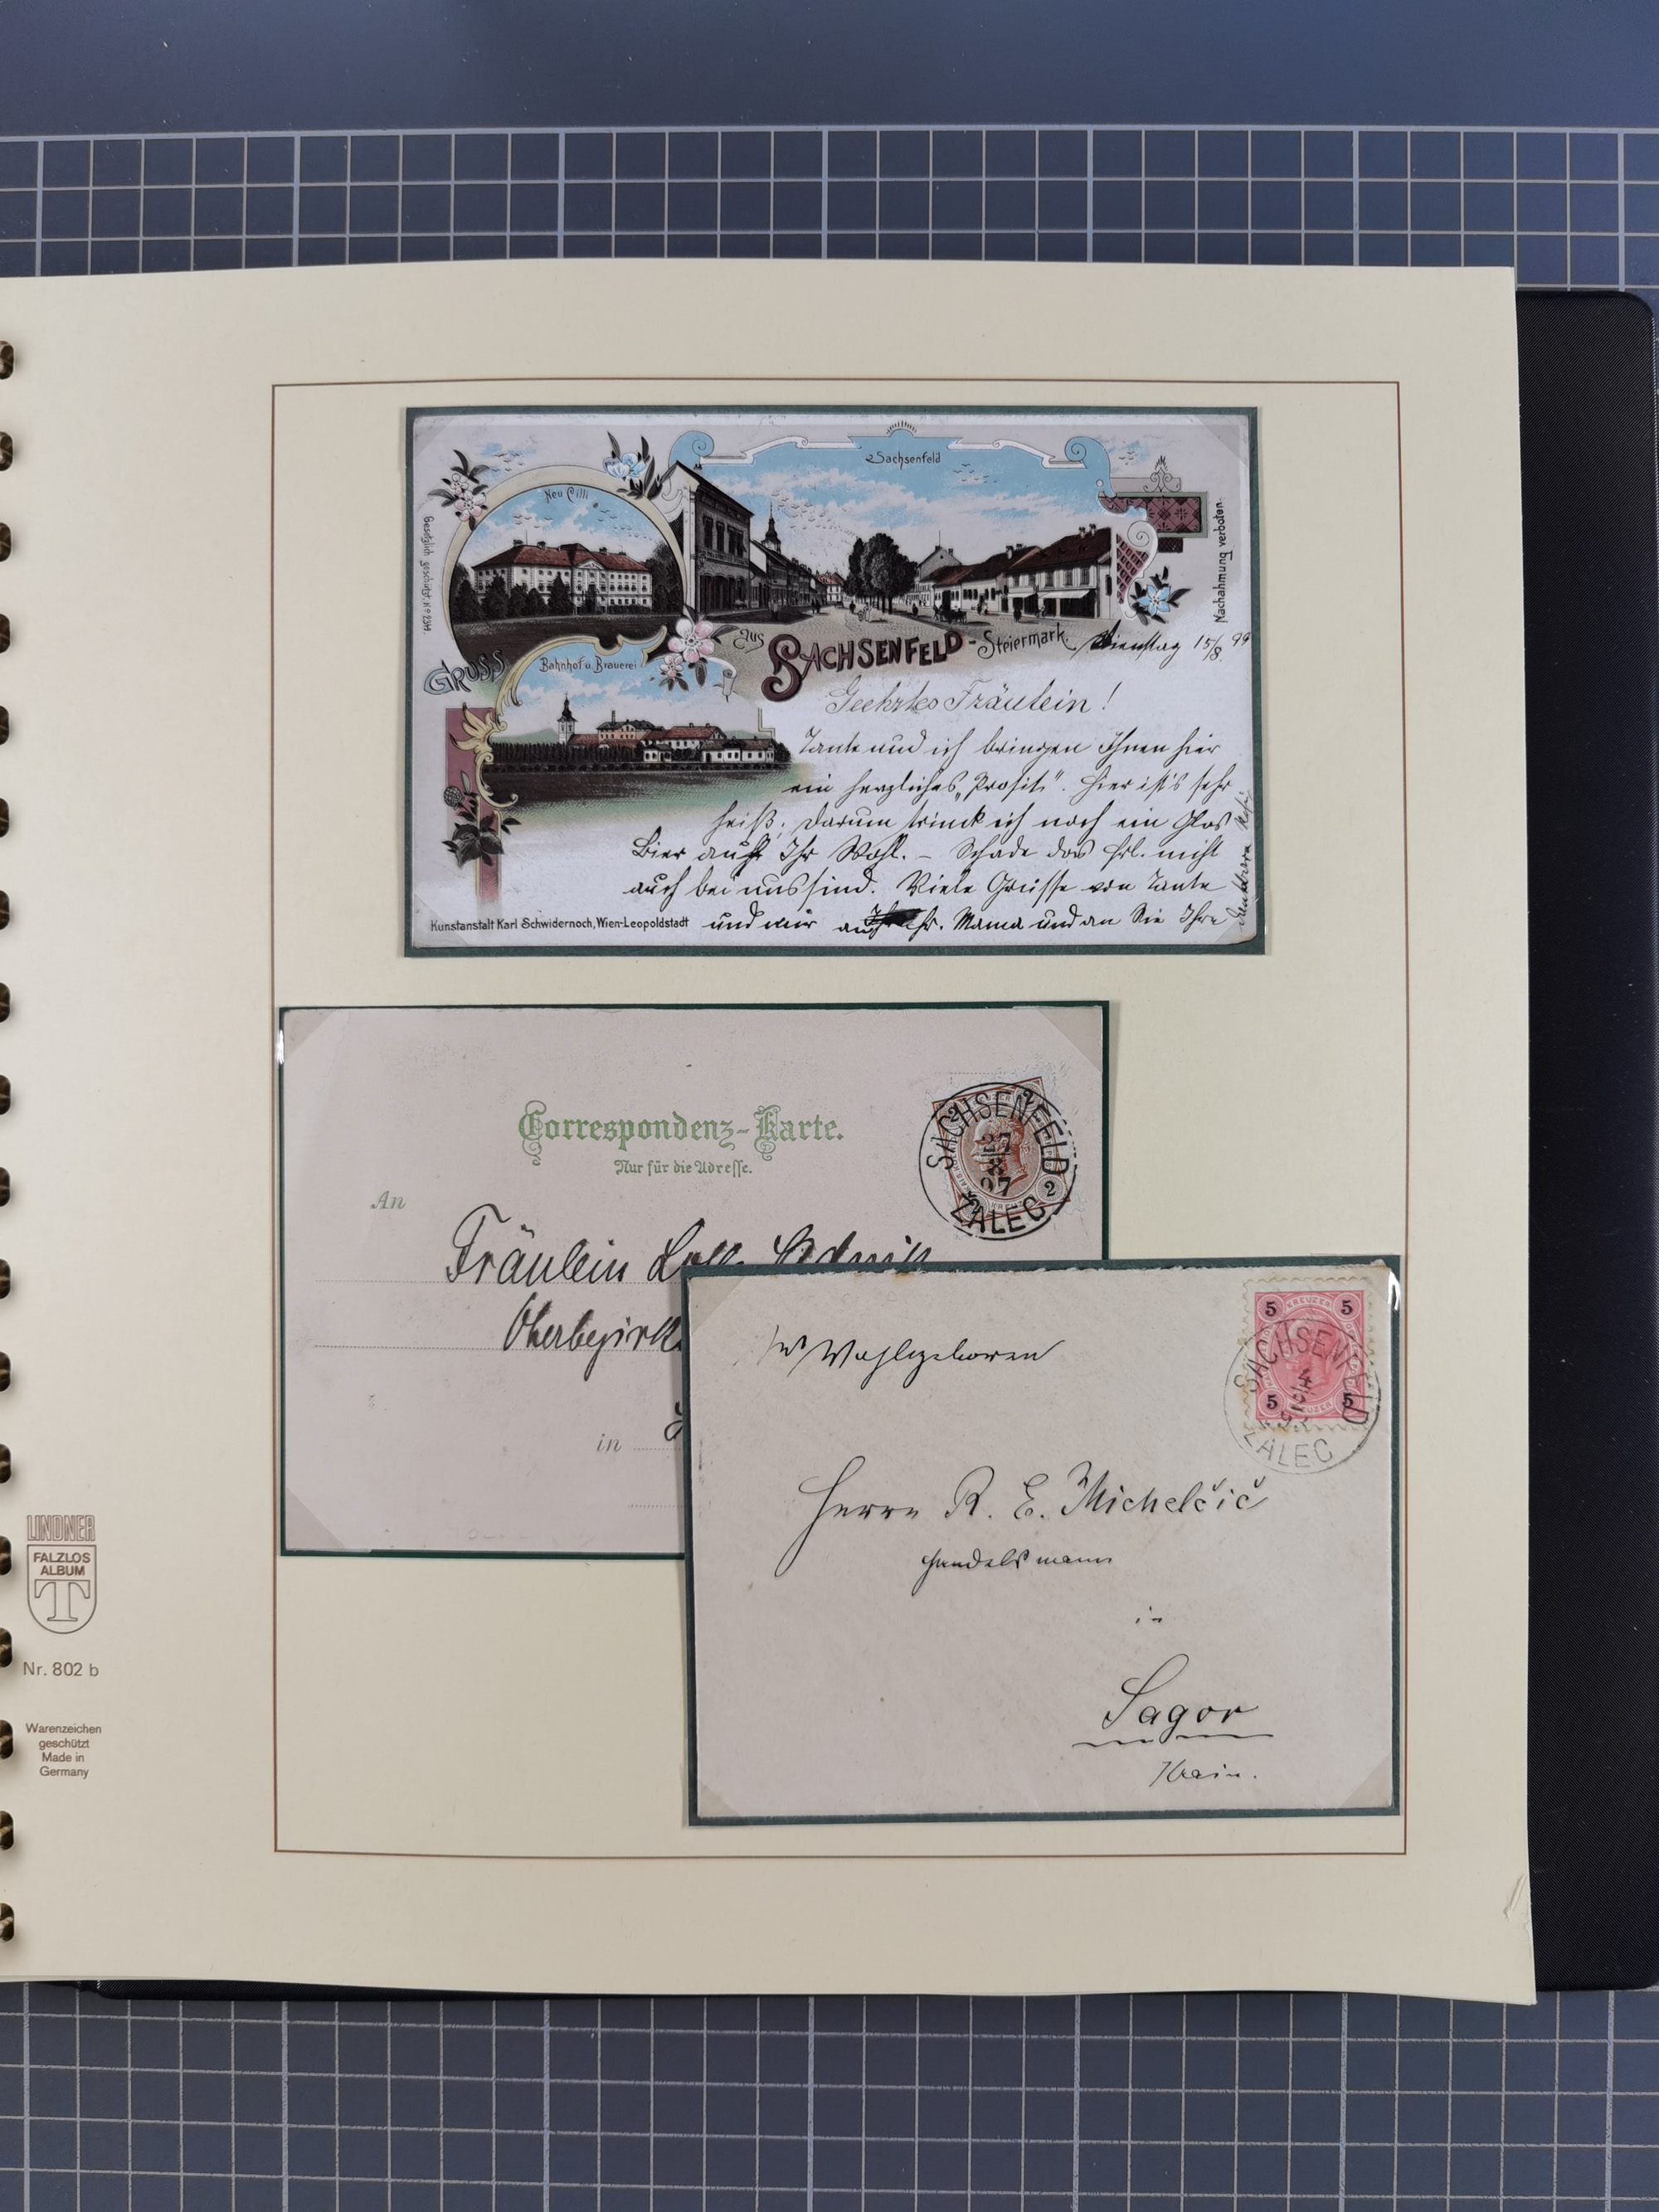 Sachsenfeld
Neu Cilli
Gesetzlich geschützt. No 2344.
Nachahmung verboten.
GRUSS
aus
SACHSENFELD - Steiermark.
Bahnhof u. Brauerei
Dienstag 15/8. 99
Geehrtes Fräulein!
Tante und ich bringen Ihnen hier
ein herzliches „Prosit". Hier ist's sehr
heiß, darum trink ich noch ein Glas
Bier auf Ihr Wohl. – Schade das Frl. nicht
auch bei uns sind. Viele Grüsse von Tante
und mir an Mama und an Sie Ihre
Kunstanstalt Karl Schwidernoch, Wien-Leopoldstadt
Correspondenz-Karte.
Nur für die Adresse.
An
Fräulein
in
SACHSENFELD
27
8
97
ŽALEC
2
2
KREUZER
Wohlgeboren
5 KREUZER 5
5 KREUZER 5
SACHSENFELD
ŽALEC
Herrn R. E. Michelčič
Handelsmann
in
Sagor
Krain.
LINDNER
FALZLOS
ALBUM
T
Nr. 802 b
Warenzeichen
geschützt
Made in
Germany